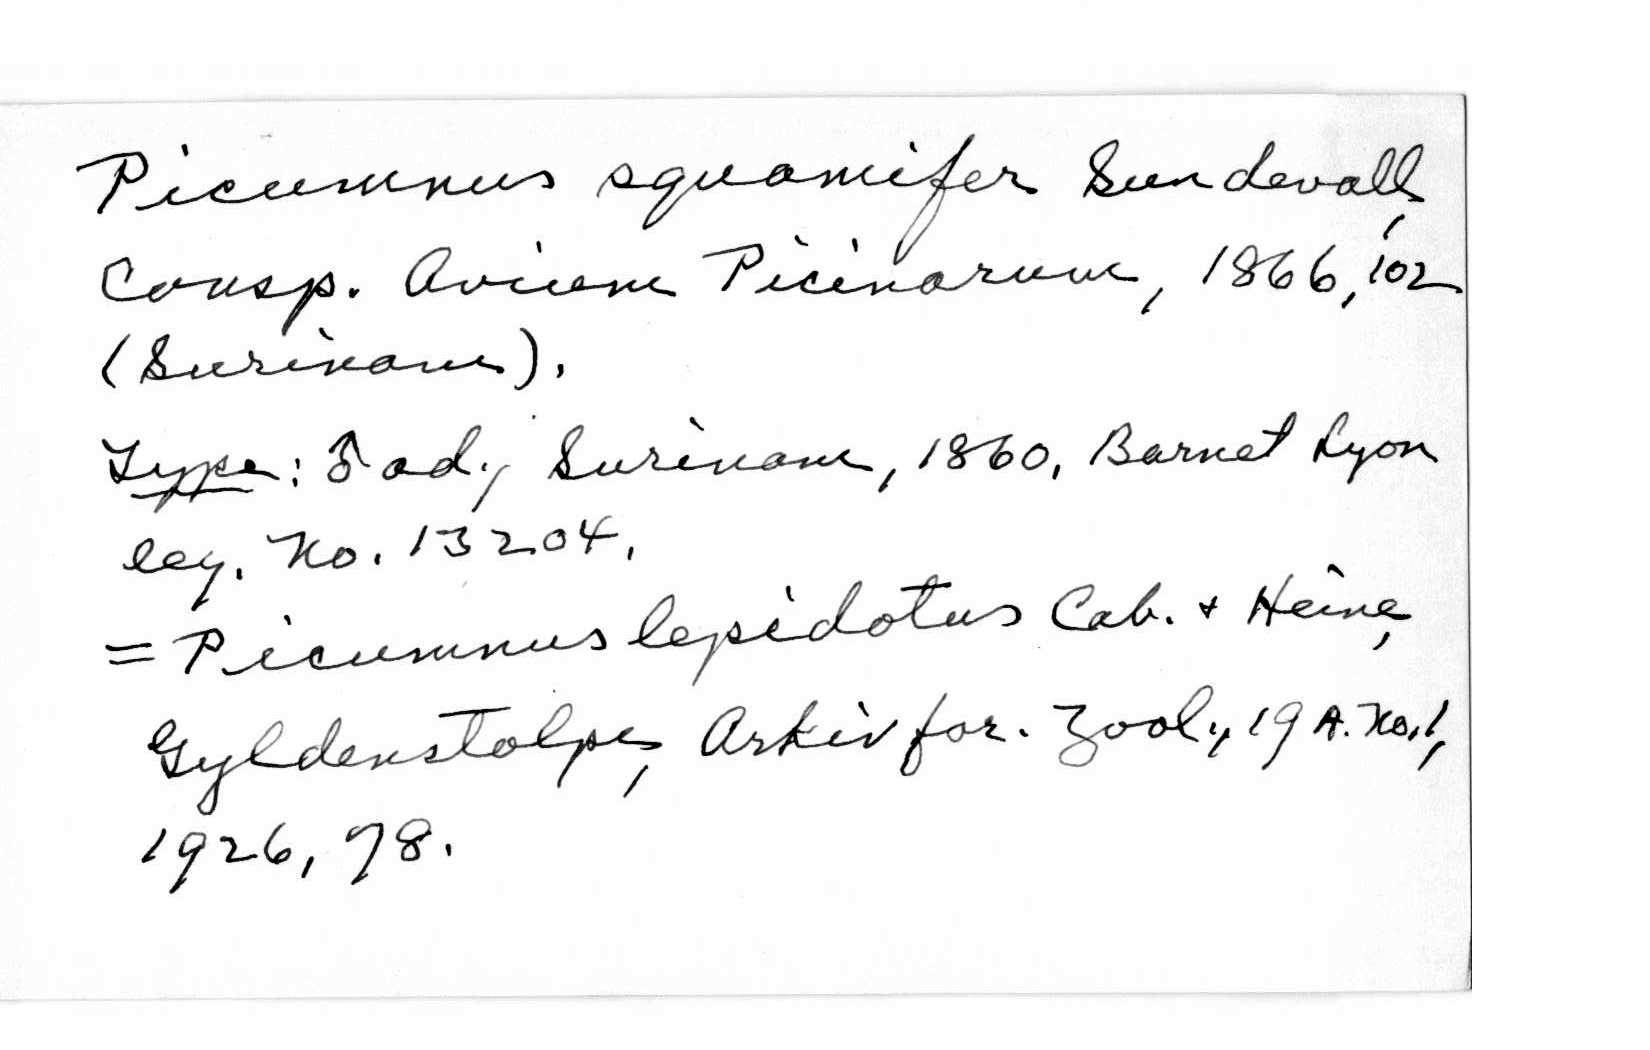 Picumnus squamifer Sundevall,
Consp. Avium Picinarum, 1866, 102
(Surinam).
Type: ♂ ad., Surinam, 1860, Barnet Lyon
leg. No. 13204.
= Picumnus lepidotus Cab. + Heine,
Gyldenstolpe, Arkiv for. Zool., 19 A. No. 1,
1926, 78.